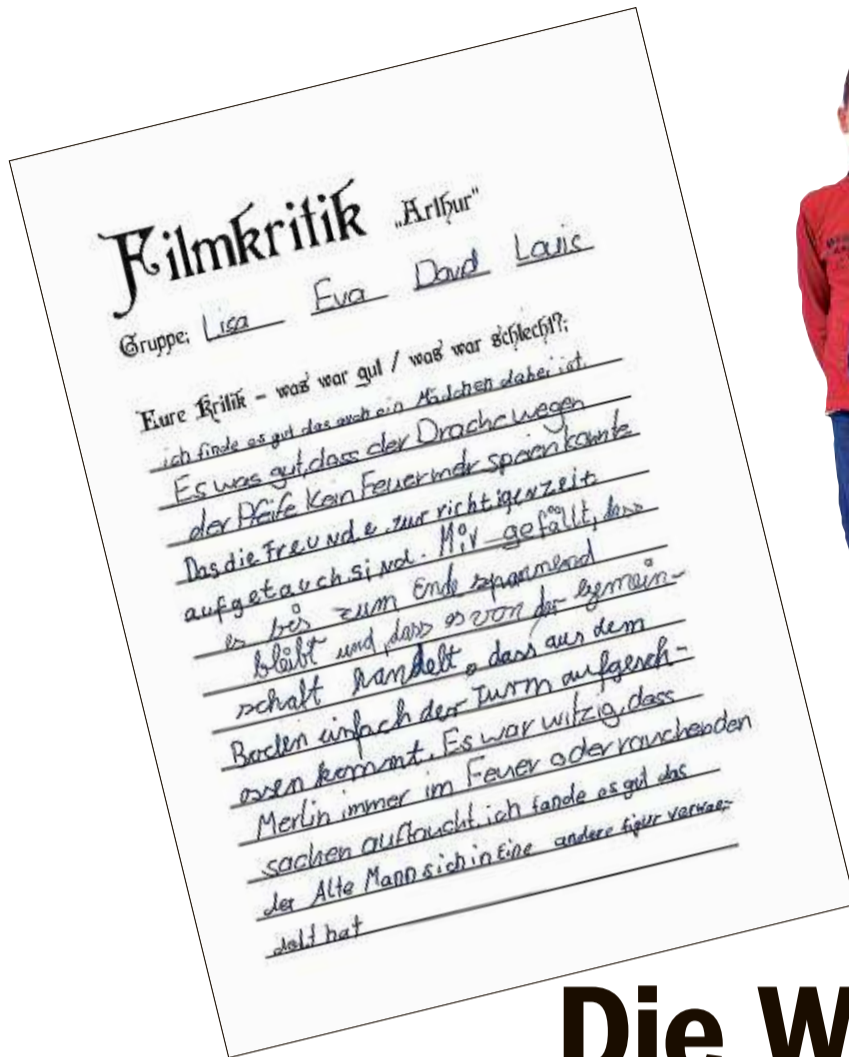 Filmkritik „Arthur"
Gruppe: Lisa Eva David Louis
Eure Kritik – was war gut / was war schlecht?:
ich finde es gut das auch ein Mädchen dabei ist.
Es was gut, dass der Drache wegen
der Pfeife kein Feuer mehr speien konnte
Das die Freunde zur richtigen zeit
aufgetauch sind. Mir gefällt, dass
es bis zum Ende spannend
bleibt und dass es von der Gemein-
schaft handelt, dass aus dem
Boden einfach der Turm aufgesch-
ossen kommt. Es war witzig, dass
Merlin immer im Feuer oder rauchenden
sachen auftaucht. ich fande es gut das
der Alte Mann sich in Eine andere figur verwan-
delt hat
Die W